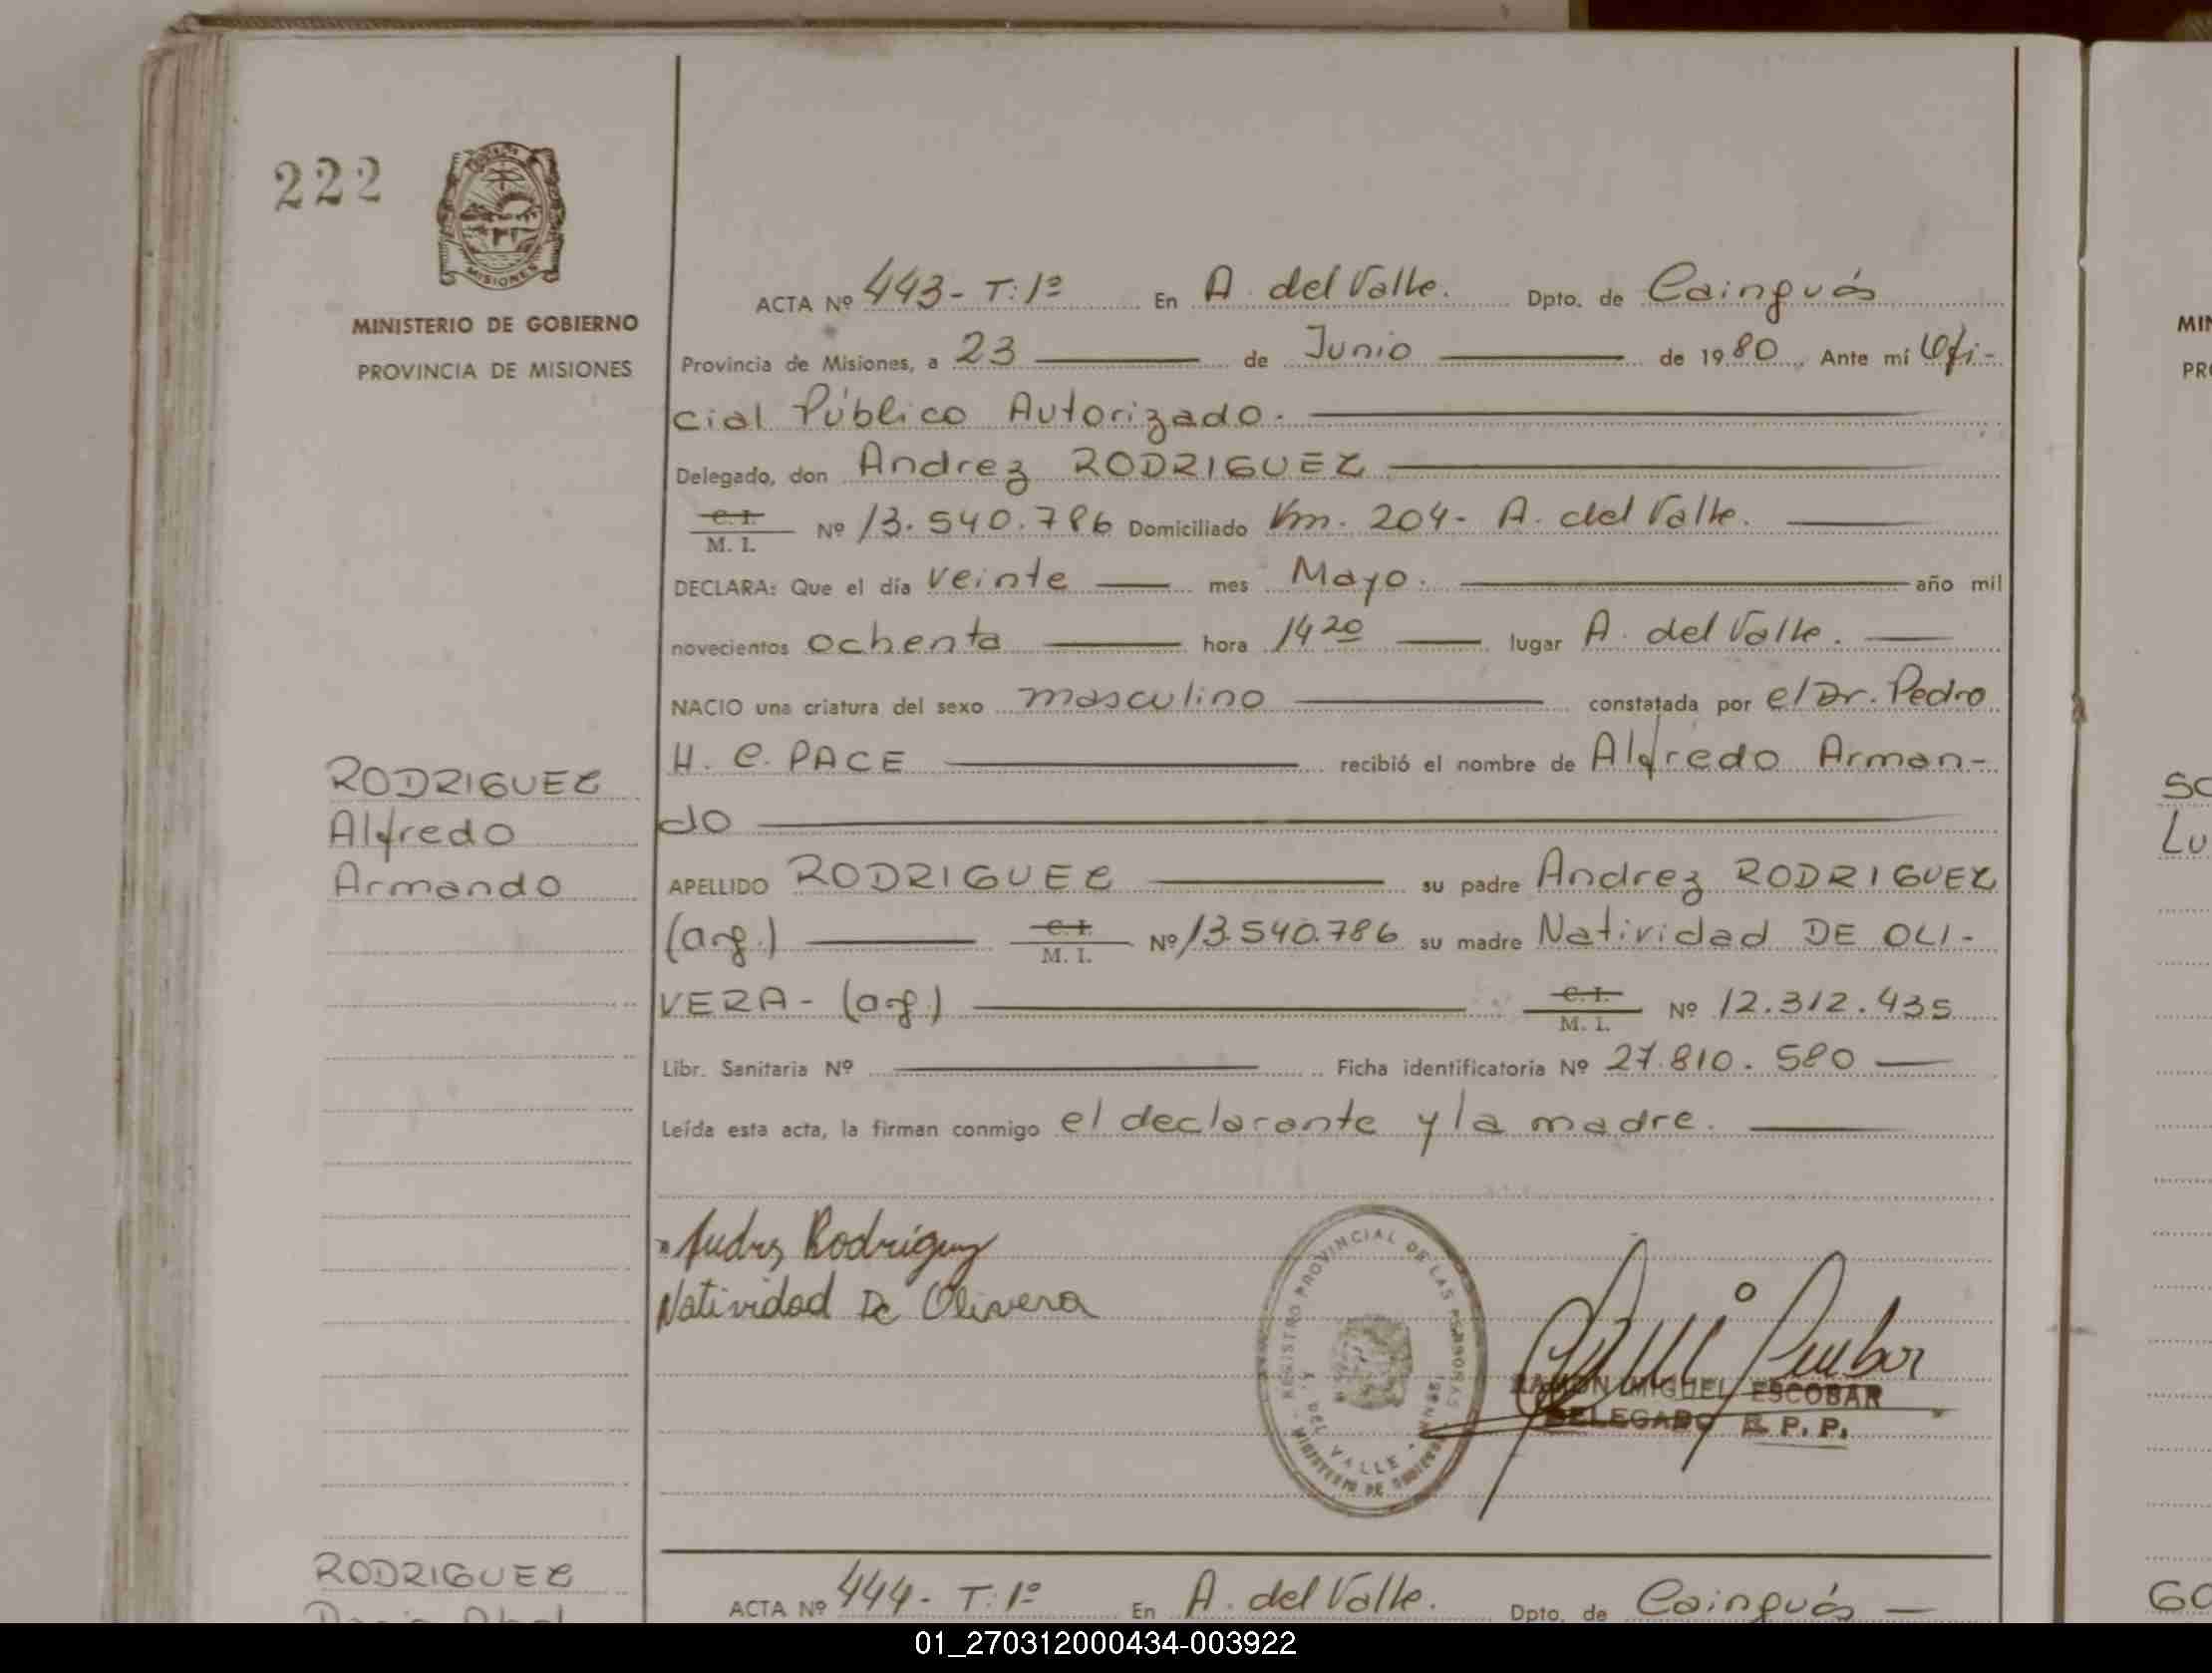 222
MISIONES
MINISTERIO DE GOBIERNO
PROVINCIA DE MISIONES
ACTA Nº 443 - T: 1º En A. del Valle. Dpto. de Cainguás
Provincia de Misiones, a 23 de Junio de 1980. Ante mí Ofi-
cial Público Autorizado.
Delegado, don Andrez RODRIGUEZ
C. I.
M. I. Nº 13.540.786 Domiciliado Km. 204 - A. del Valle.
DECLARA: Que el día veinte mes Mayo. año mil
novecientos ochenta hora 14 20 lugar A. del Valle.
NACIO una criatura del sexo masculino constatada por el Dr. Pedro
H. C. PACE recibió el nombre de Alfredo Arman-
do
RODRIGUEZ
Alfredo
Armando
APELLIDO RODRIGUEZ su padre Andrez RODRIGUEZ
(arg.) C. I.
M. I. Nº 13.540.786 su madre Natividad DE OLI-
VERA - (arg.) C. I.
M. I. Nº 12.312.435
Libr. Sanitaria Nº Ficha identificatoria Nº 27.810.580
Leída esta acta, la firman conmigo el declarante y la madre.
Andrez Rodriguez
Natividad De Olivera
REGISTRO PROVINCIAL DE LAS PERSONAS
DEL VALLE
MINISTERIO DE GOBIERNO
RAMON MIGUEL ESCOBAR
DELEGADO R. P. P.
RODRIGUEZ
ACTA Nº 444 - T: 1º En A. del Valle. Dpto. de Cainguás
MIN
PRO
SO
Lu
GO
01_270312000434-003922